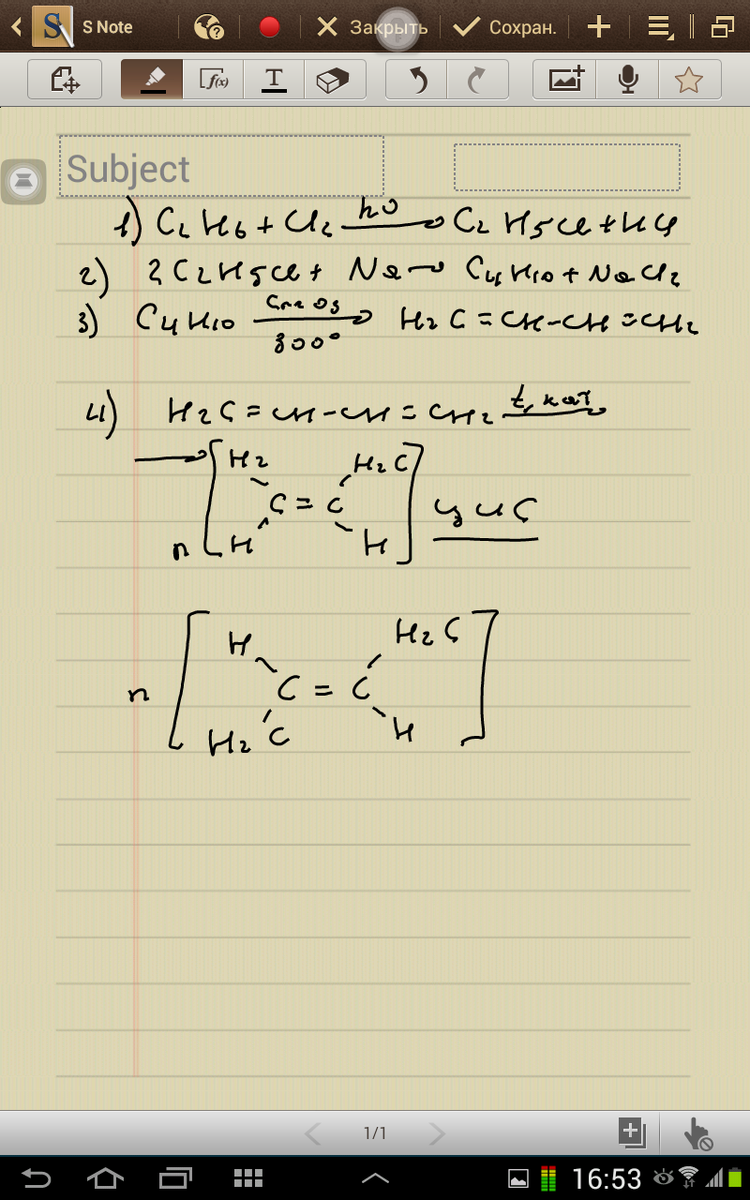 S Note Закрыть Сохран.
f(x) T
Subject
1) C2H6 + Cl2 hν→ C2H5Cl + HCl
2) 2C2H5Cl + Na → C4H10 + NaCl2
3) C4H10 Cr2O3 300° → H2C=CH-CH=CH2
4) H2C=CH-CH=CH2 t, кат
→ [H2 H2C]
C = C цис
n H H
H H2C
n [ C = C ]
H2C H
1/1
16:53